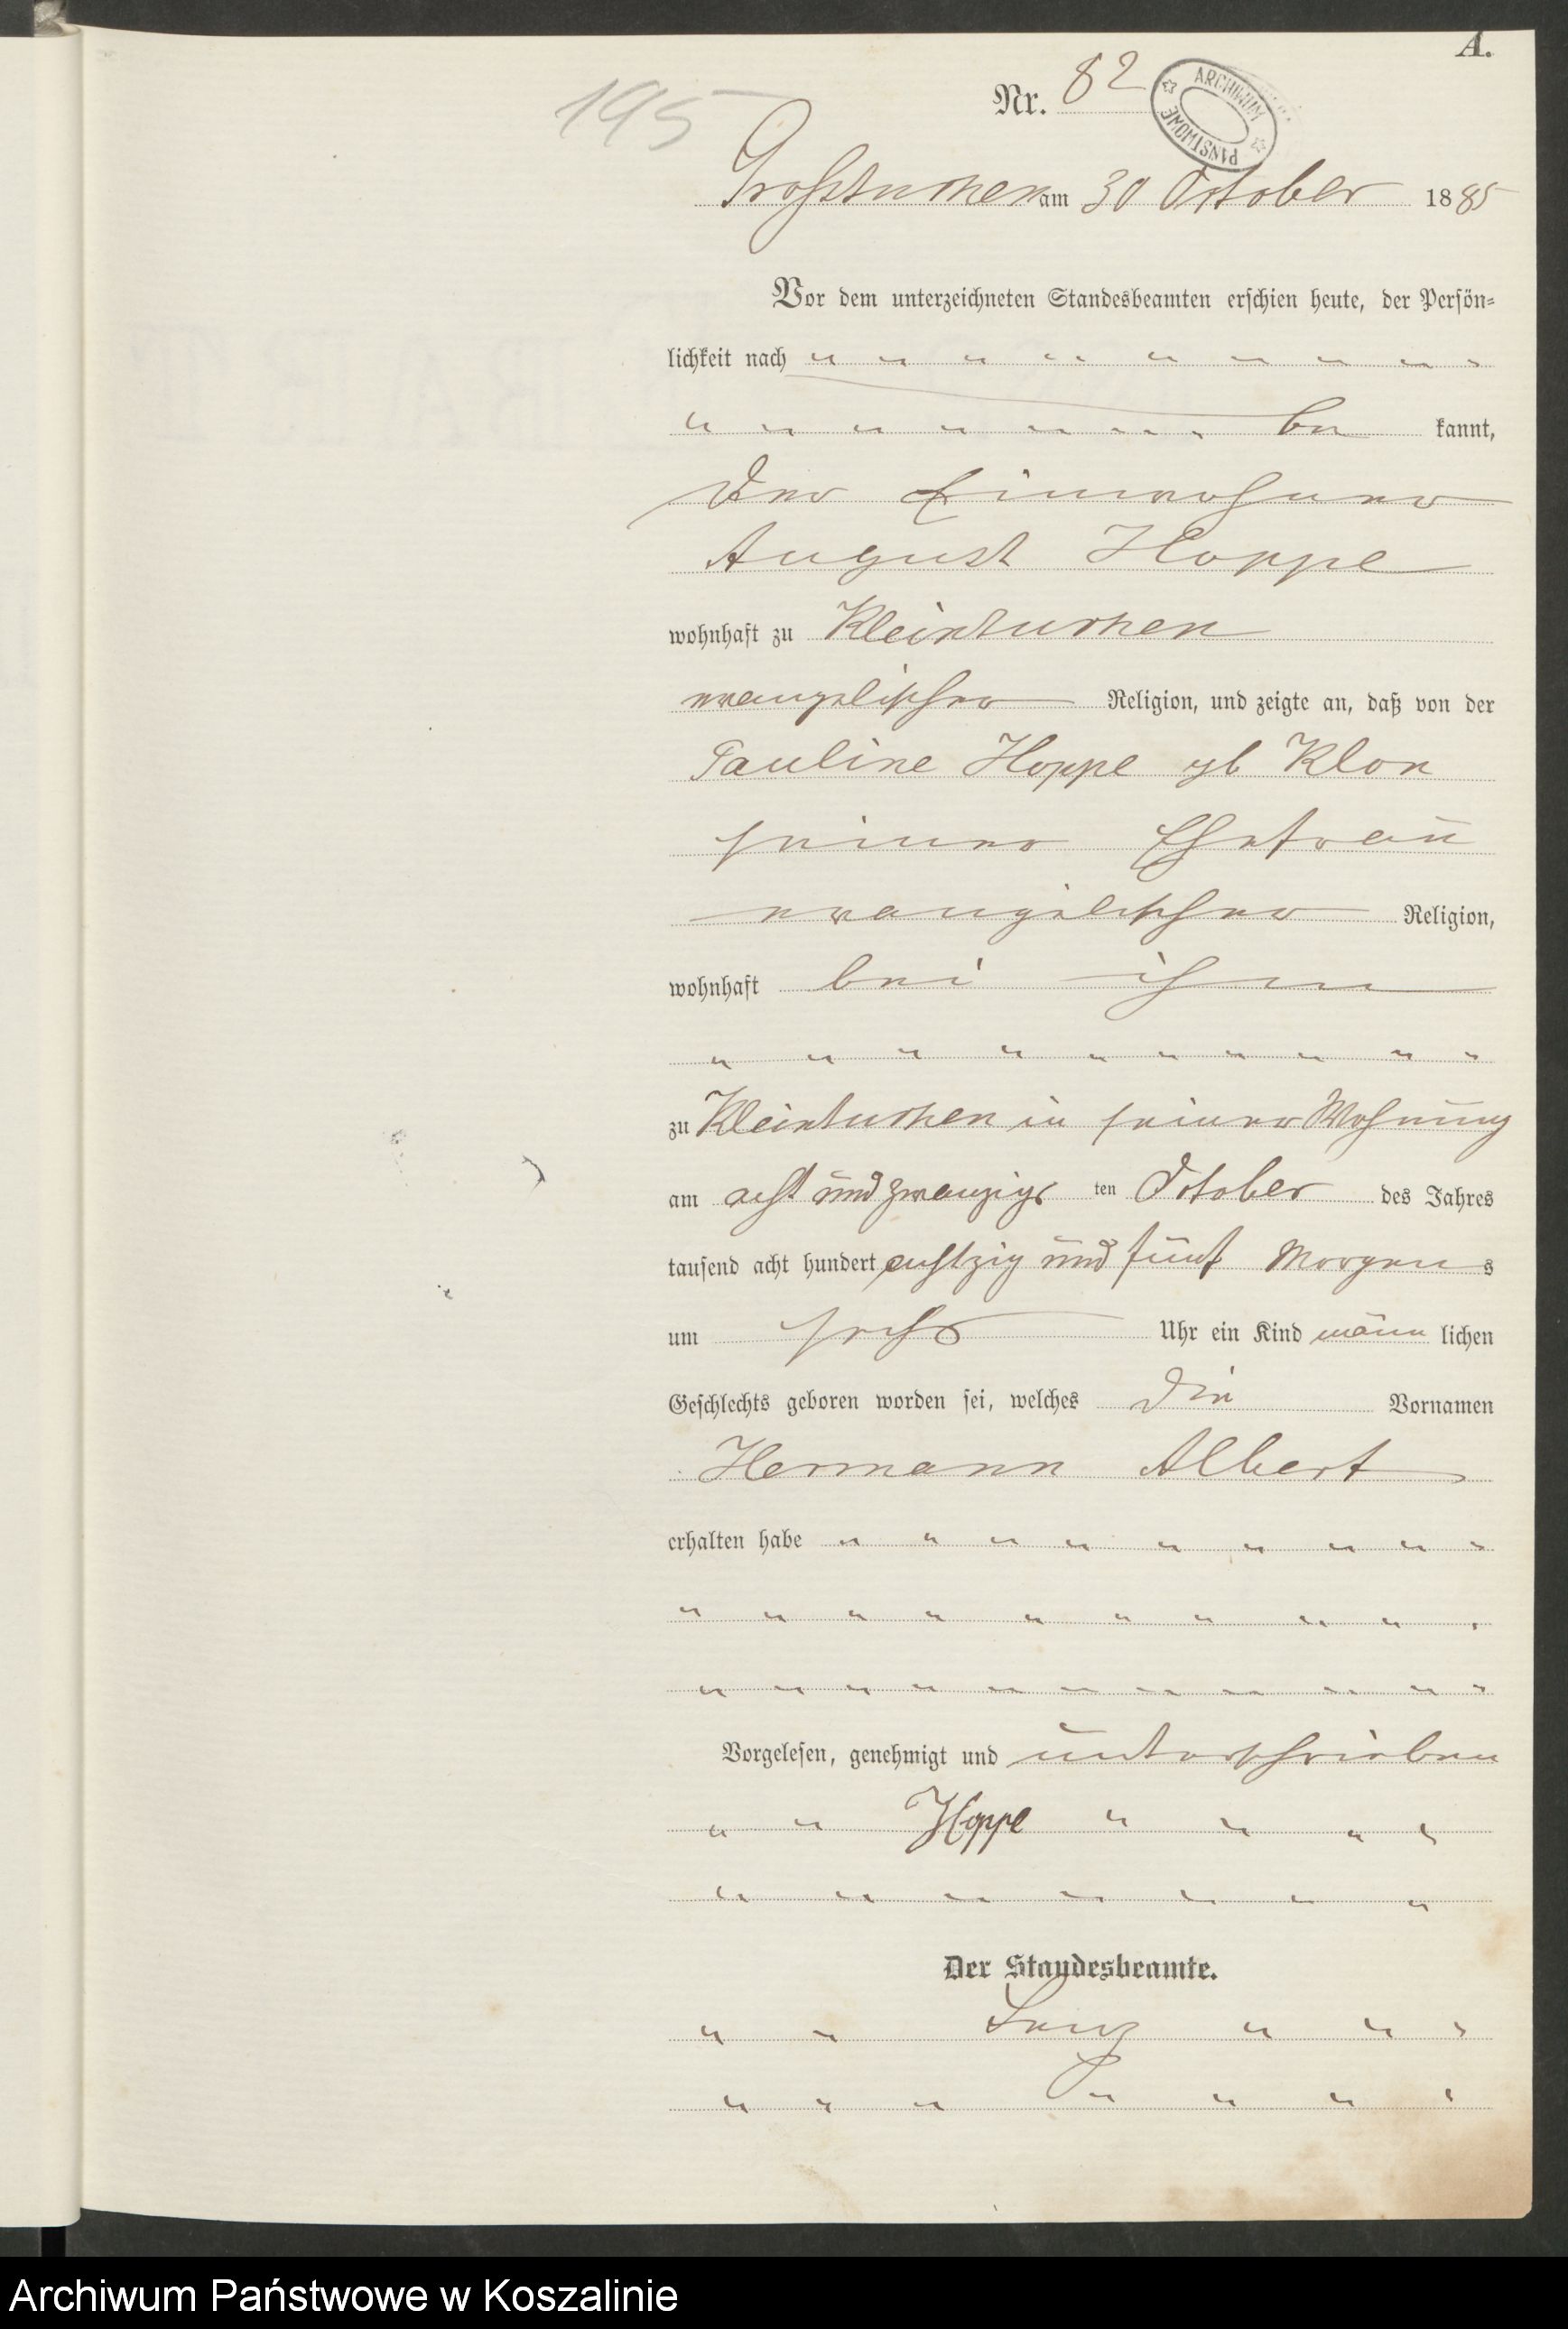 A.
195
Nr. 82
ARCHIWUM PAŃSTWOWE
Großtuchen am 30 October 1885
Vor dem unterzeichneten Standesbeamten erschien heute, der Persön=
lichkeit nach
be kannt,
der Einwohner
August Hoppe
wohnhaft zu Kleintuchen
evangelischer Religion, und zeigte an, daß von der
Pauline Hoppe gb Klon
seiner Ehefrau
evangelischer Religion,
wohnhaft bei ihm
zu Kleintuchen in seiner Wohnung
am acht und zwanzigs ten October des Jahres
tausend acht hundert achtzig und fünf Morgens
um sechs Uhr ein Kind männ lichen
Geschlechts geboren worden sei, welches die Vornamen
Hermann Albert
erhalten habe
Vorgelesen, genehmigt und unterschrieben
Hoppe
Der Standesbeamte.
Archiwum Państwowe w Koszalinie